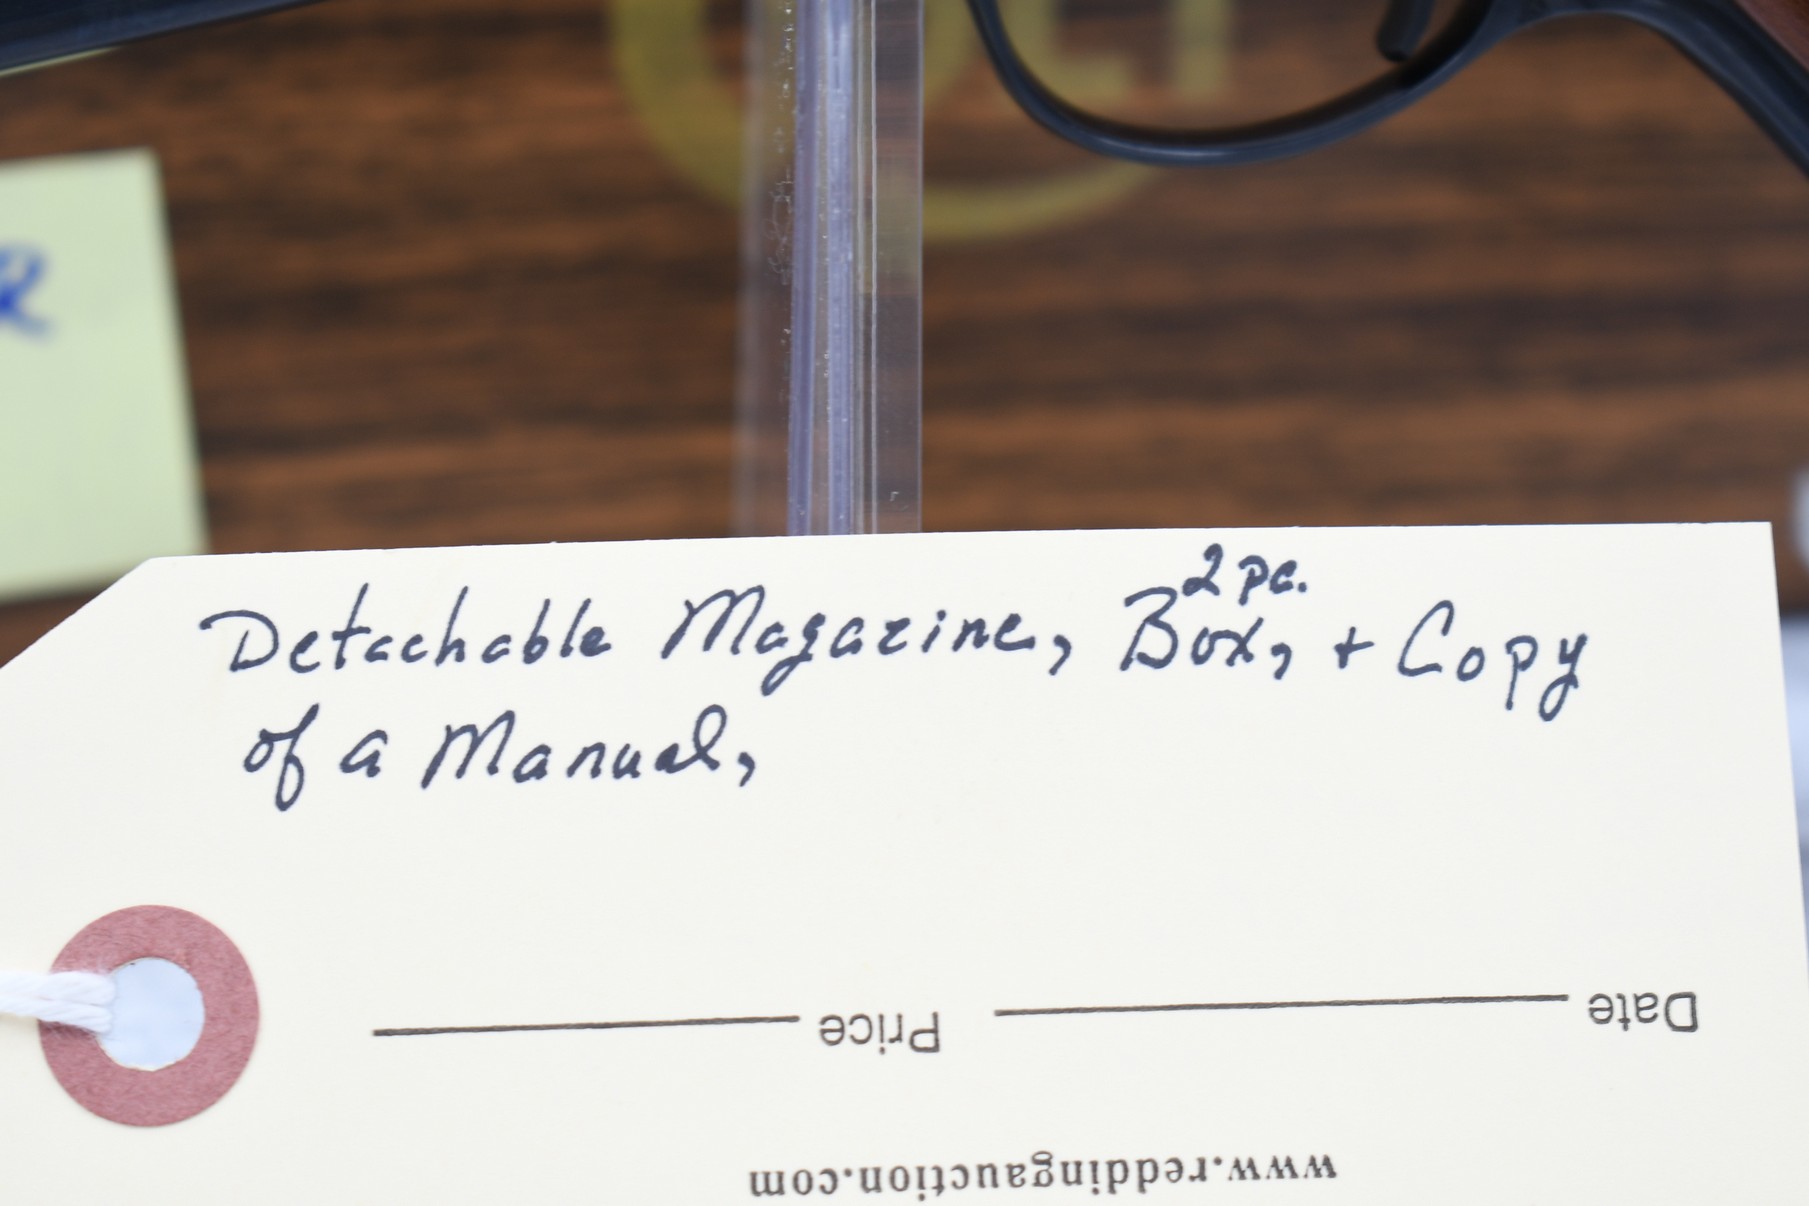 R
2 pc.
Detachable Magazine, Box, + Copy
of a Manual,
Date
Price
www.reddingauction.com